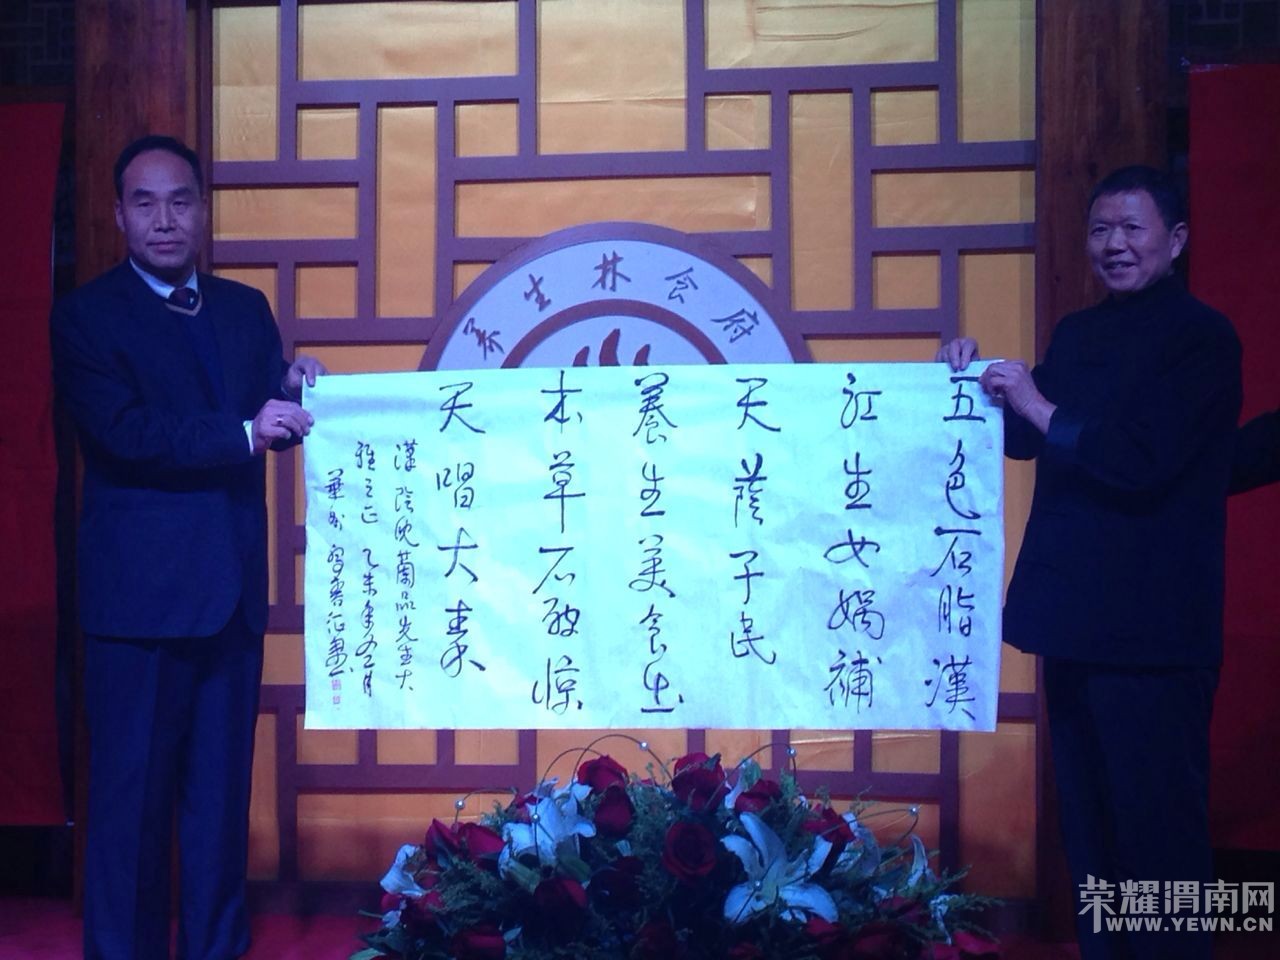 养生林会府
五色石脂漢
江生女媧補
天蔭子民
養生美食生
本草石破惊
天唱大秦
漢陰沈蘭品先生大
雅之正 乙未年冬月
華州
荣耀渭南网
WWW.YEWN.CN